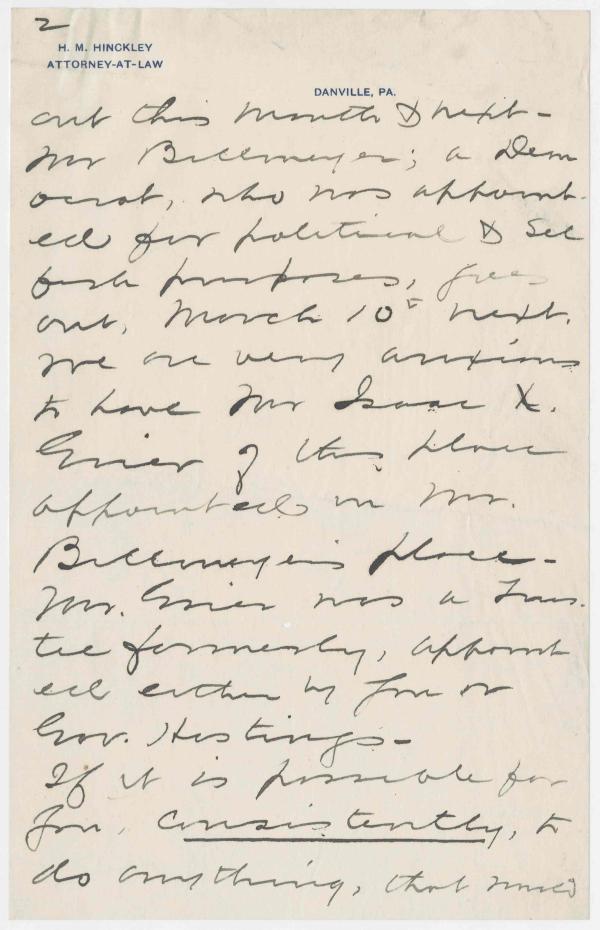 2
H. M. HINCKLEY
ATTORNEY-AT-LAW
DANVILLE, PA.
out this month & next-
Mr Billmeyer; a Dem
ocrat, who was appoint-
ed for political & Sel
fish purposes, goes
out, March 10th next.
We are very anxious
to have Mr Isaac X.
Grier of this place
appointed in Mr.
Billmeyer's place-
Mr. Grier was a Trus-
tee formerly, appoint
ed either by you or
Gov. Hastings-
If it is possible for
you, consistently, to
do anything, that would